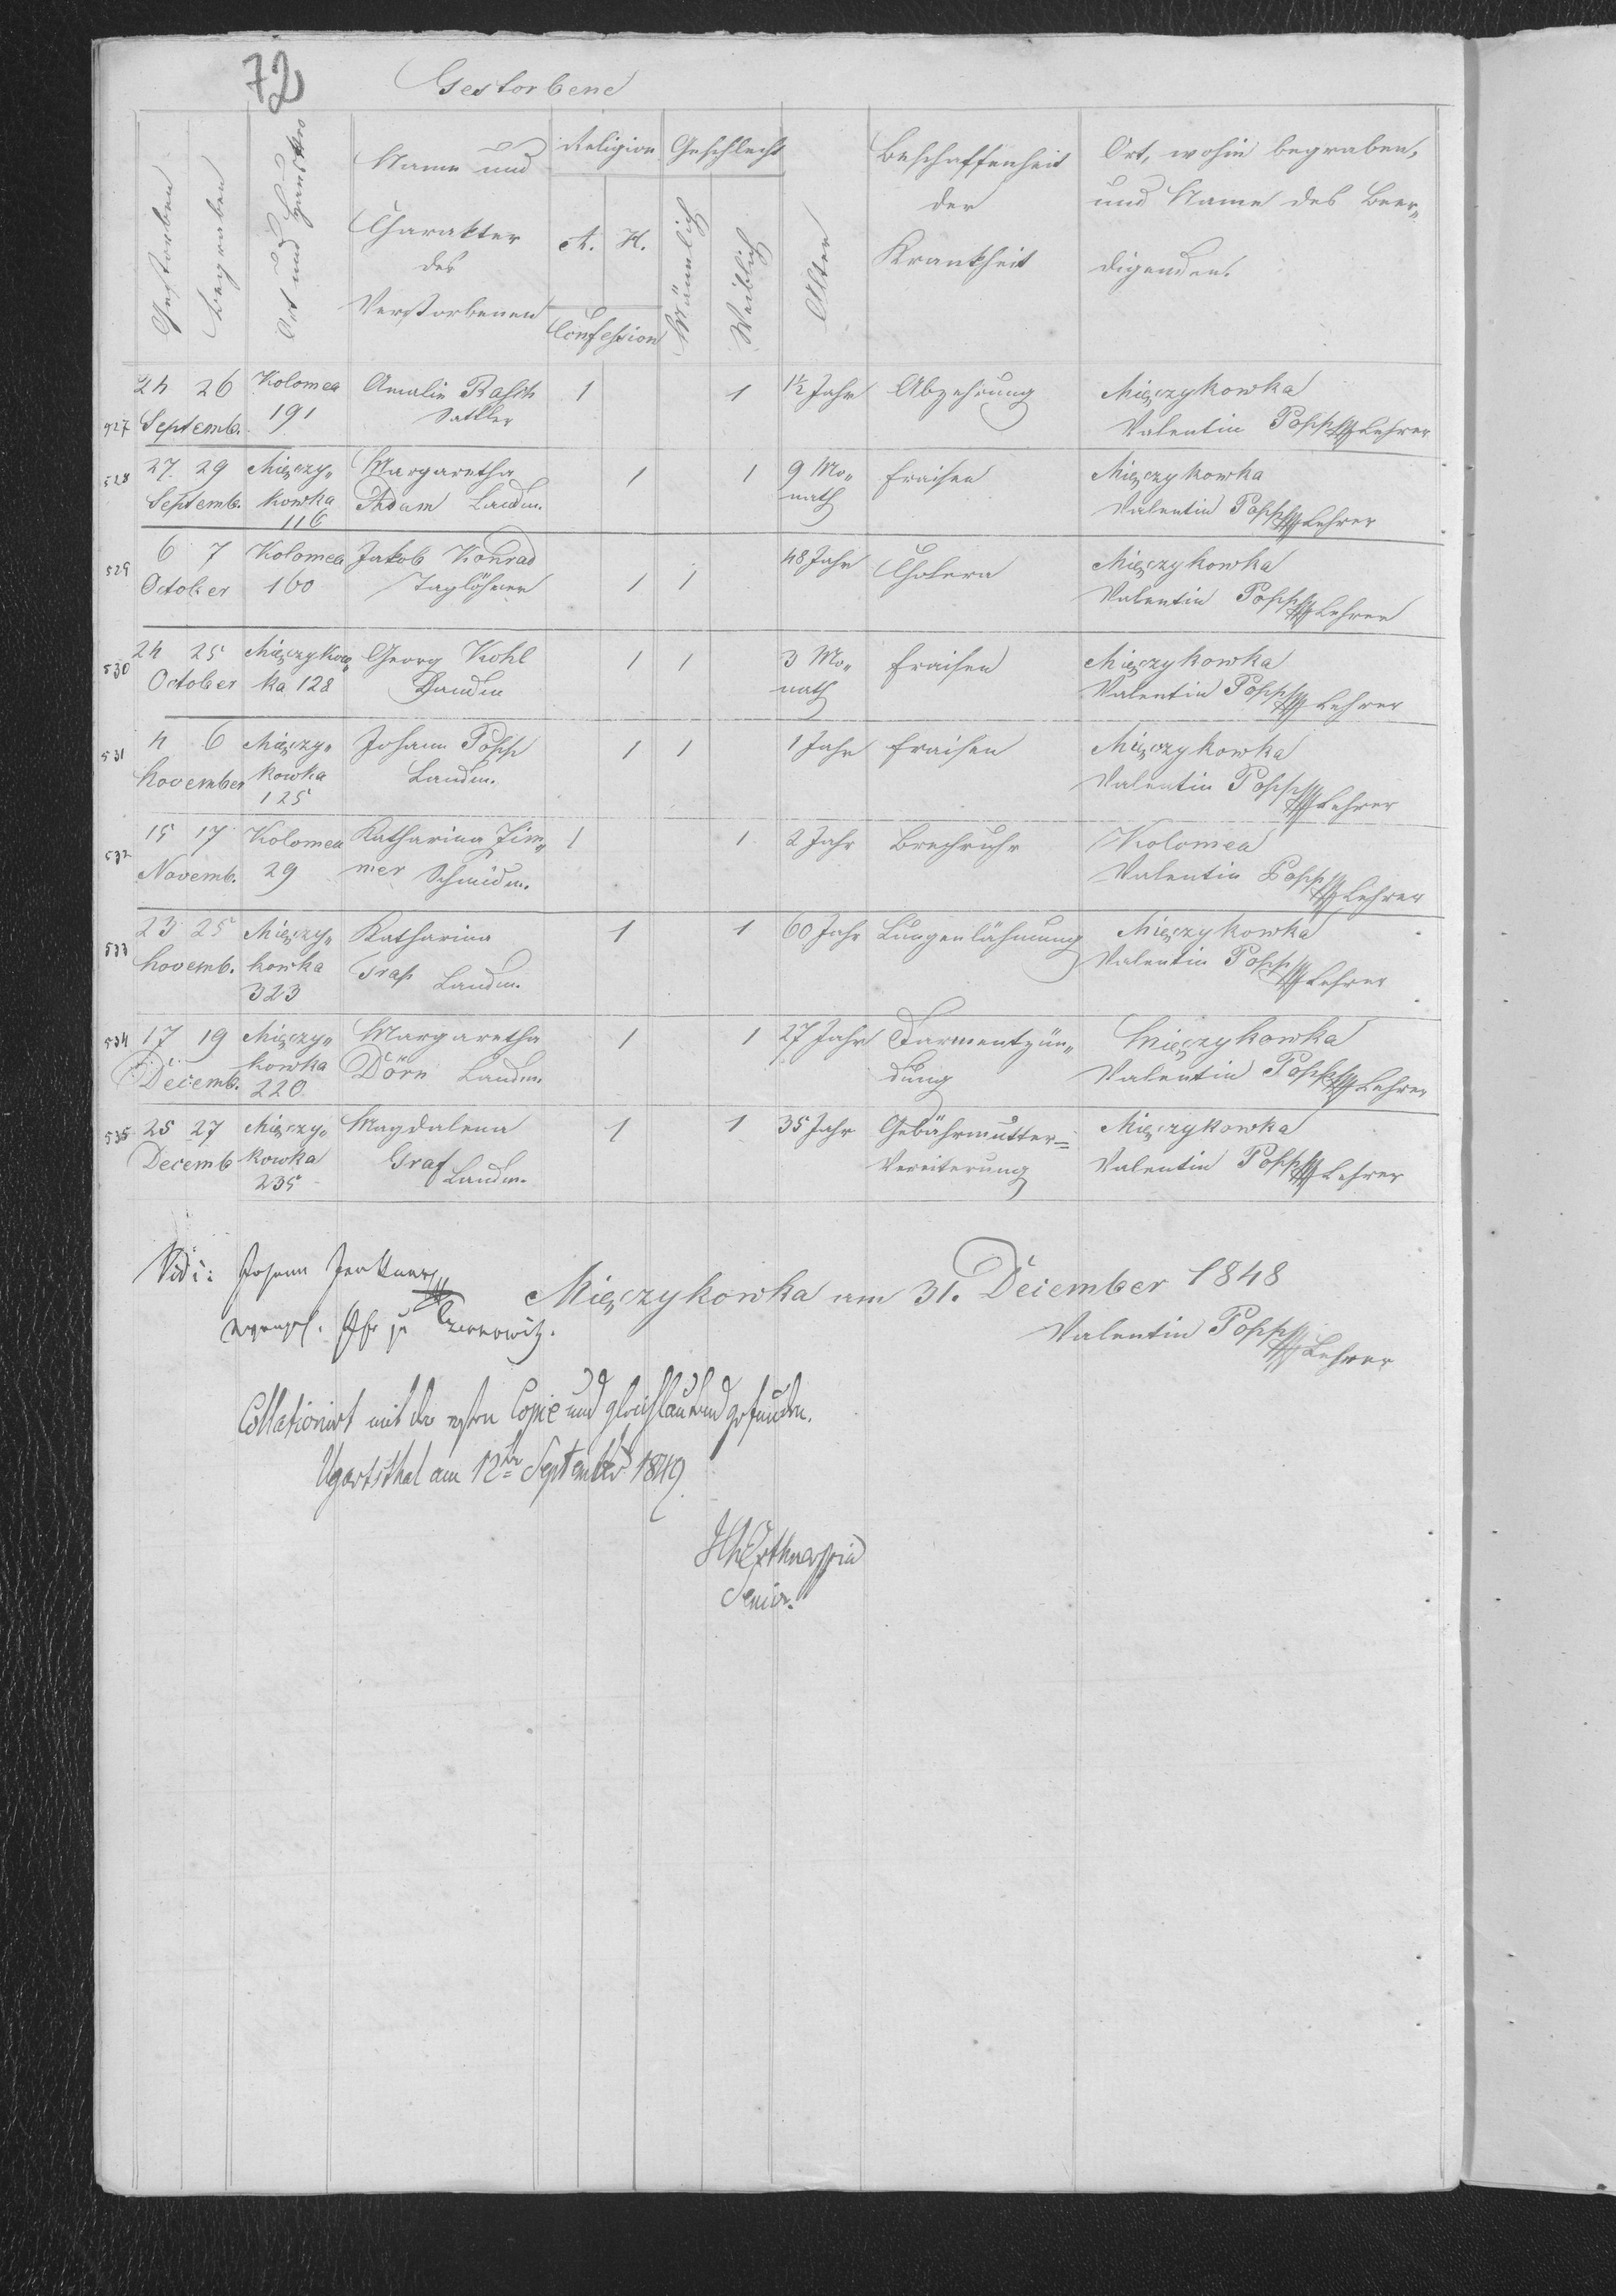 72
Gestorbene
Gestorben
Begraben
Ort und Haus Nro
Name und
Charakter
des
Verstorbenen
Religion
A. H.
Confession
Geschlecht
Männlich
Weiblich
Alter
Beschaffenheit
der
Krankheit
Ort, wohin begraben,
und Name des Beer„
digenden.
24 26 Kolomea Amalie Rasch 1 1 1½ Jahr Abzehrung Mięczykowka
927 Septemb. 191 Sattler Valentin Popp Lehrer
528 27. 29 Mięczy„ Margaretha 1 1 9 Mo„ Fraisen Mięczykowka
Septemb. kowka Adam Landm. nath Valentin Popp Lehrer
116
6 7 Kolomea Jakob Konrad 48 Jahr Cholera Mięczykowka
529 October 160 Taglöhner 1 1 Valentin Popp Lehrer
24 25 Mięczykow„ Georg Kohl 1 1 3 Mo„ Fraisen Mięczykowka
530 October ka 128 Landm nath Valentin Popp Lehrer
531 4 6 Mięczy„ Johann Popp 1 1 1 Jahr Fraisen Mięczykowka
November kowka Landm. Valentin Popp Lehrer
125
532 15 17 Kolomea Katharina Zim„ 1 1 2 Jahr Brechruhr Kolomea
Novemb. 29 mer Schmidm. Valentin Popp Lehrer
533 23 25 Mięczy„ Katharina 1 1 60 Jahr Lungenlähmung Mięczykowka
Novemb. kowka Graf Landm. Valentin Popp Lehrer
323
534 17 19 Mięczy„ Margaretha 1 1 27 Jahr Darmentzün„ Mięczykowka
Decemb. kowka Dörn Landm. dung Valentin Popp Lehrer
220
535 25 27 Mięczy„ Magdalena 1 1 35 Jahr Gebährmutter= Mięczykowka
Decemb kowka Graf Landm. Vereiterung Valentin Popp Lehrer
235
Vidi: Johann
Czernowitz.
Mięczykowka am 31. December 1848
Valentin Popp Lehrer
Collationirt mit der ersten Copie und gleichlautend gefunden.
Ugartsthal am 12ten September 1849
Senior.